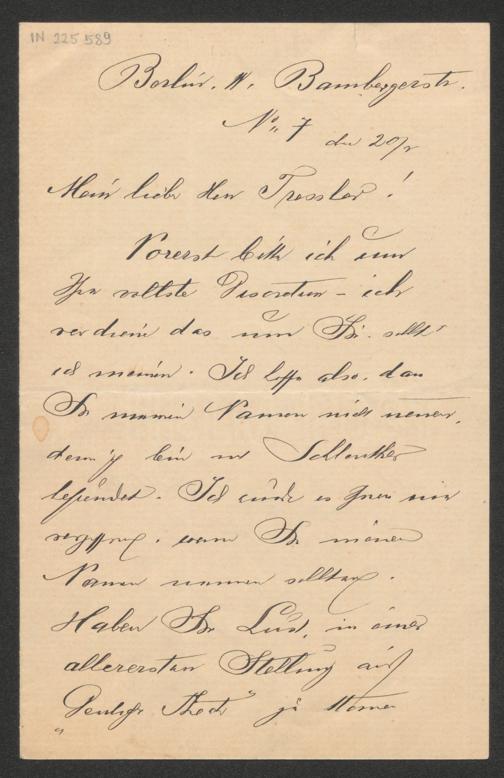 IN 225 589
Berlin. W. Bambergerstr.
No 7 den 20/2
Mein lieber Herr Tressler!
Vorerst bitte ich um
Ihre vollste Discretion – ich
verdiene das um Sie. sollt'
ich meinen. Ich hoffe also, dass
Sie meinen Namen nicht nennen,
denn ich bin mit Schlenther
befreundet. Ich würde es Ihnen nie
vergessen, wenn Sie meinen
Namen nennen sollten.
Haben Sie Lust, in einer
allerersten Stellung ans
„Deutsche Theater" zu kommen